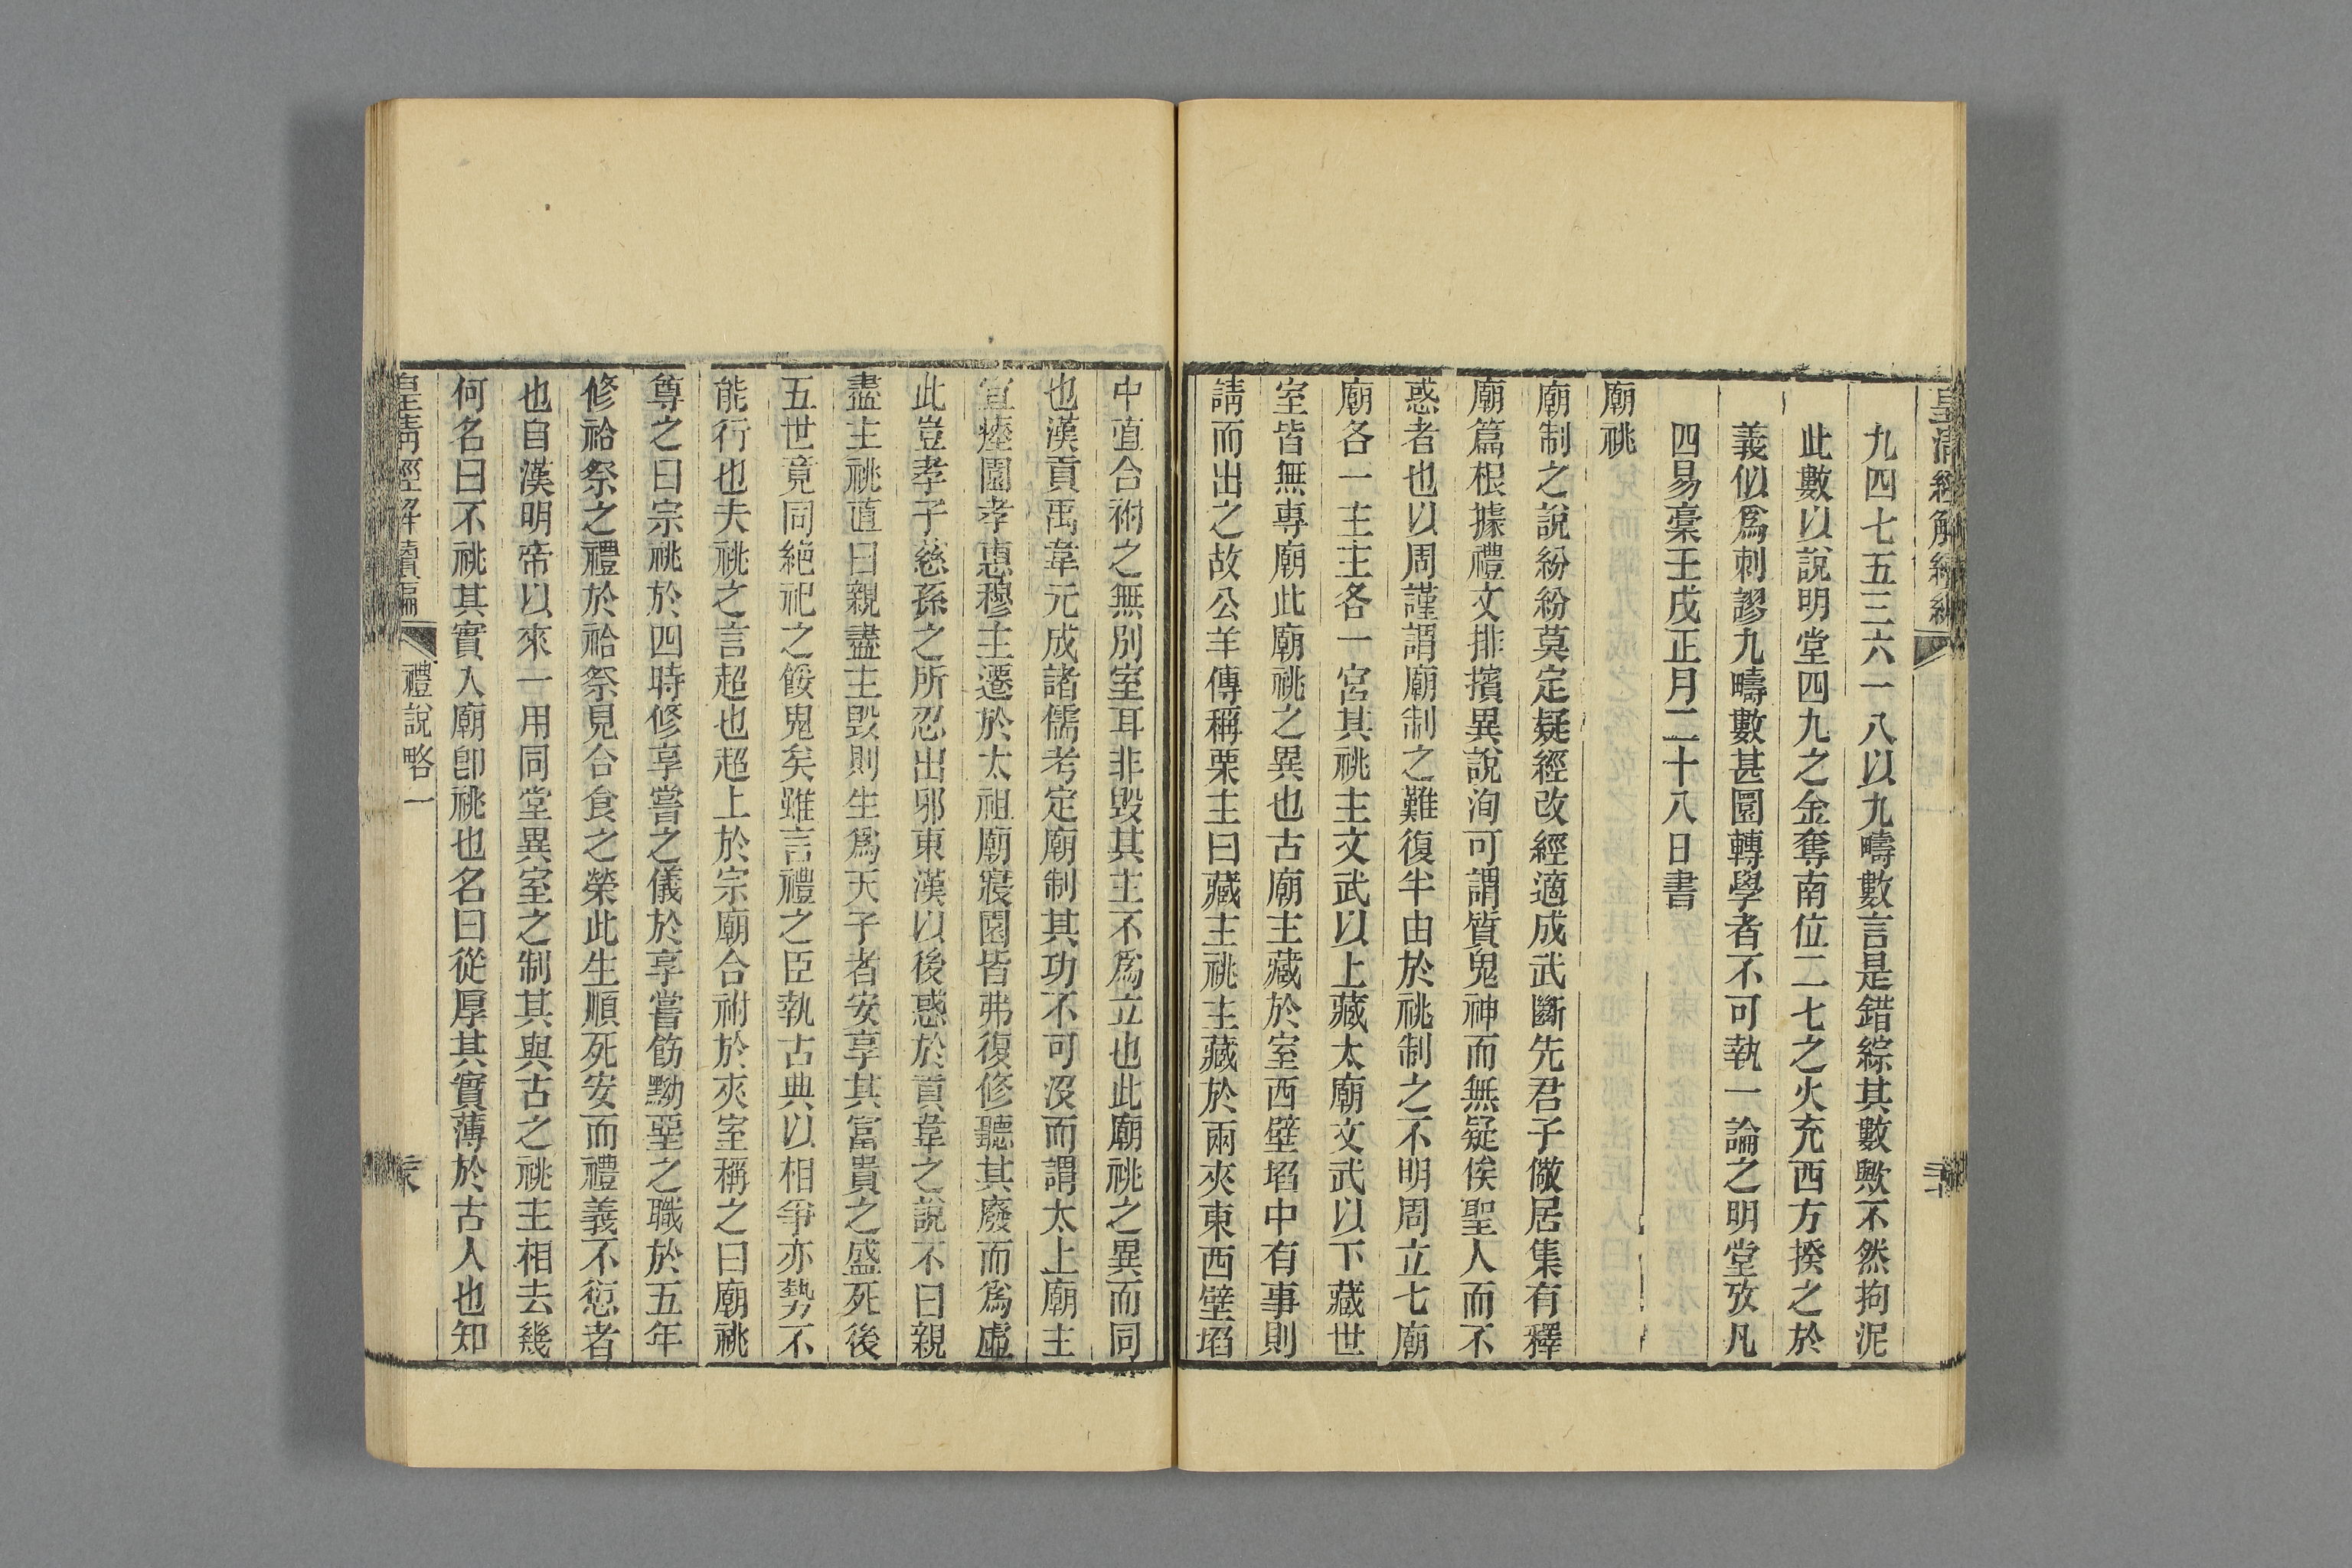 皇清經解續編
九四七五三六一八以九疇數言是錯綜其數歟不然拘泥
此數以說明堂四九之金奪南位二七之火充西方揆之於
義似爲剌謬九疇數甚圜轉學者不可執一論之明堂攷凡
四易稾壬戌正月二十八日書
廟祧
廟制之說紛紛莫定疑經改經適成武斷先君子儆居集有釋
廟篇根據禮文排擯異說洵可謂質鬼神而無疑俟聖人而不
惑者也以周謹謂廟制之難復半由於祧制之不明周立七廟
廟各一主主各一宮其祧主文武以上藏太廟文武以下藏世
室皆無專廟此廟祧之異也古廟主藏於室西壁埳中有事則
請而出之故公羊傳稱栗主曰藏主祧主藏於兩夾東西壁埳
中直合祔之無別室耳非毀其主不爲立也此廟祧之異而同
也漢貢禹韋元成諸儒考定廟制其功不可沒而謂太上廟主
宜瘞園孝惠穆主遷於太祖廟寢園皆弗復修聽其廢而爲虛
此豈孝子慈孫之所忍出邪東漢以後惑於貢韋之說不曰親
盡主祧直曰親盡主毀則生爲天子者安享其富貴之盛死後
五世竟同絕祀之餒鬼矣雖言禮之臣執古典以相爭亦勢不
能行也夫祧之言超也超上於宗廟合祔於夾室稱之曰廟祧
尊之曰宗祧於四時修享嘗之儀於享嘗飭黝堊之職於五年
修祫祭之禮於祫祭見合食之榮此生順死安而禮義不愆者
也自漢明帝以來一用同堂異室之制其與古之祧主相去幾
何名曰不祧其實入廟卽祧也名曰從厚其實薄於古人也知
皇清經解續編 禮說略一